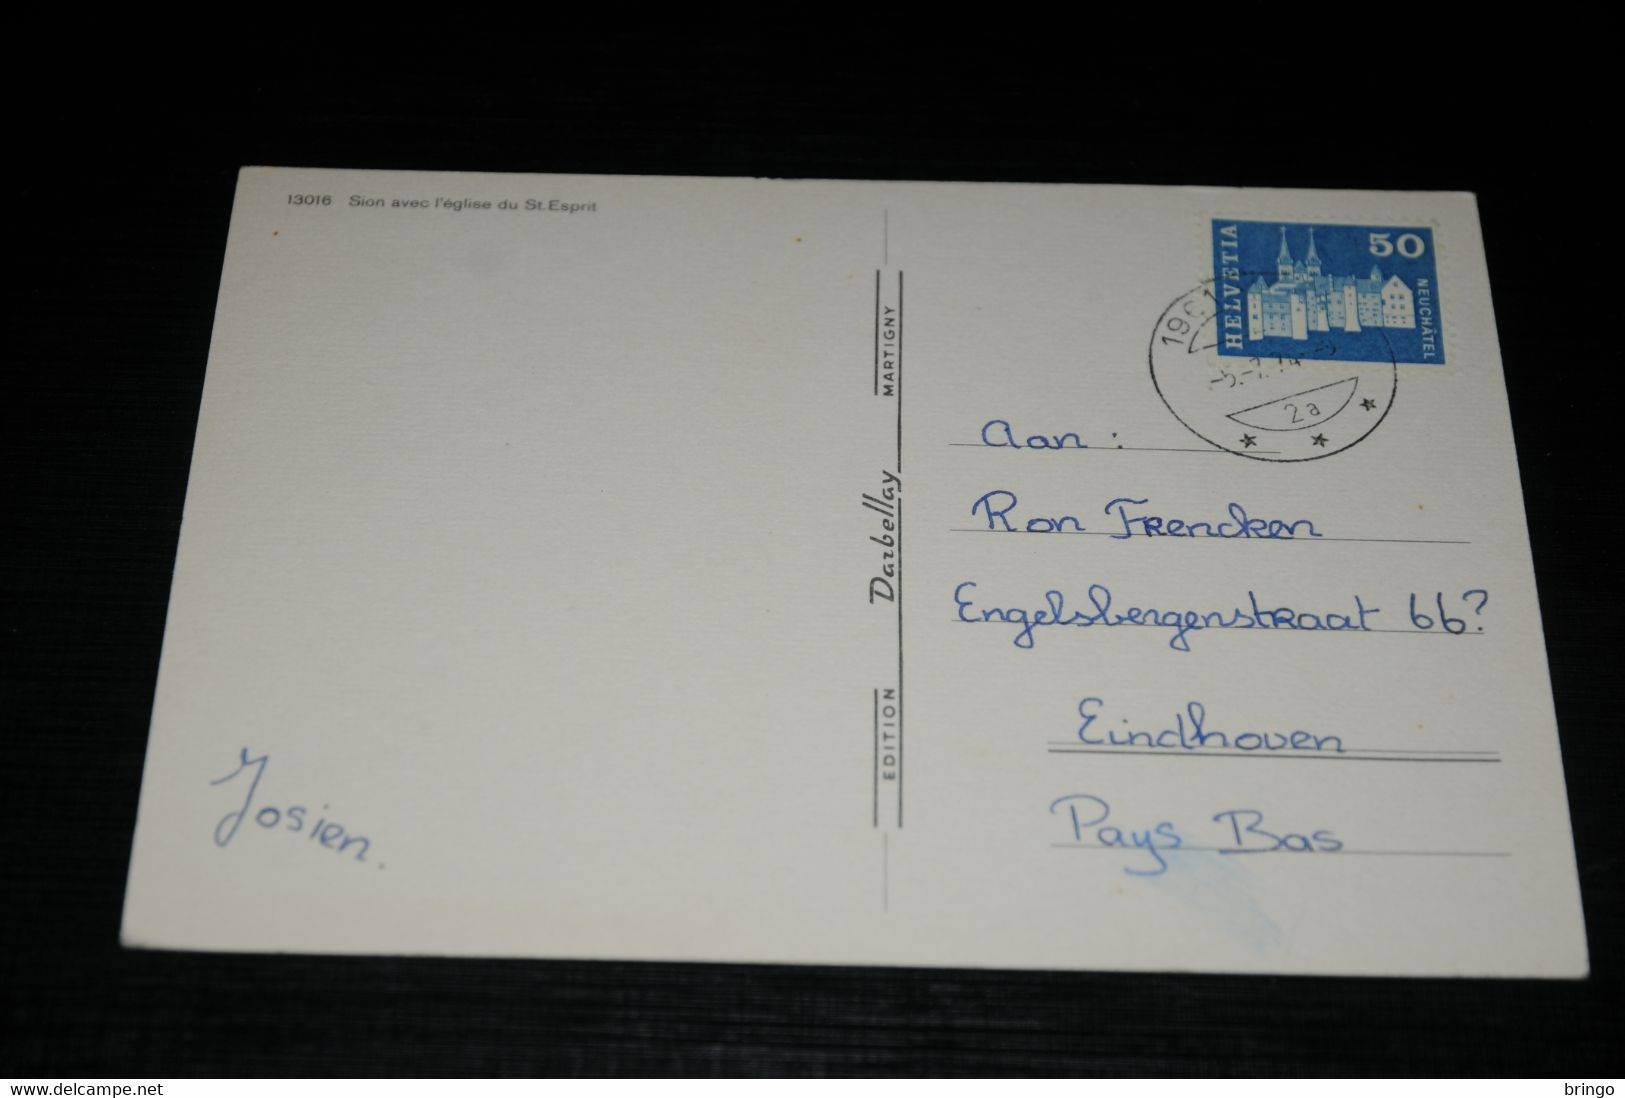 13016 Sion avec l'église du St.Esprit
HELVETIA
50
NEUCHÂTEL
1961
-5.-7.74
2a
MARTIGNY
Darbellay
EDITION
Aan :
Ron Frencken
Engelsbergenstraat 66?
Eindhoven
Pays Bas
Josien.
www.delcampe.net
bringo